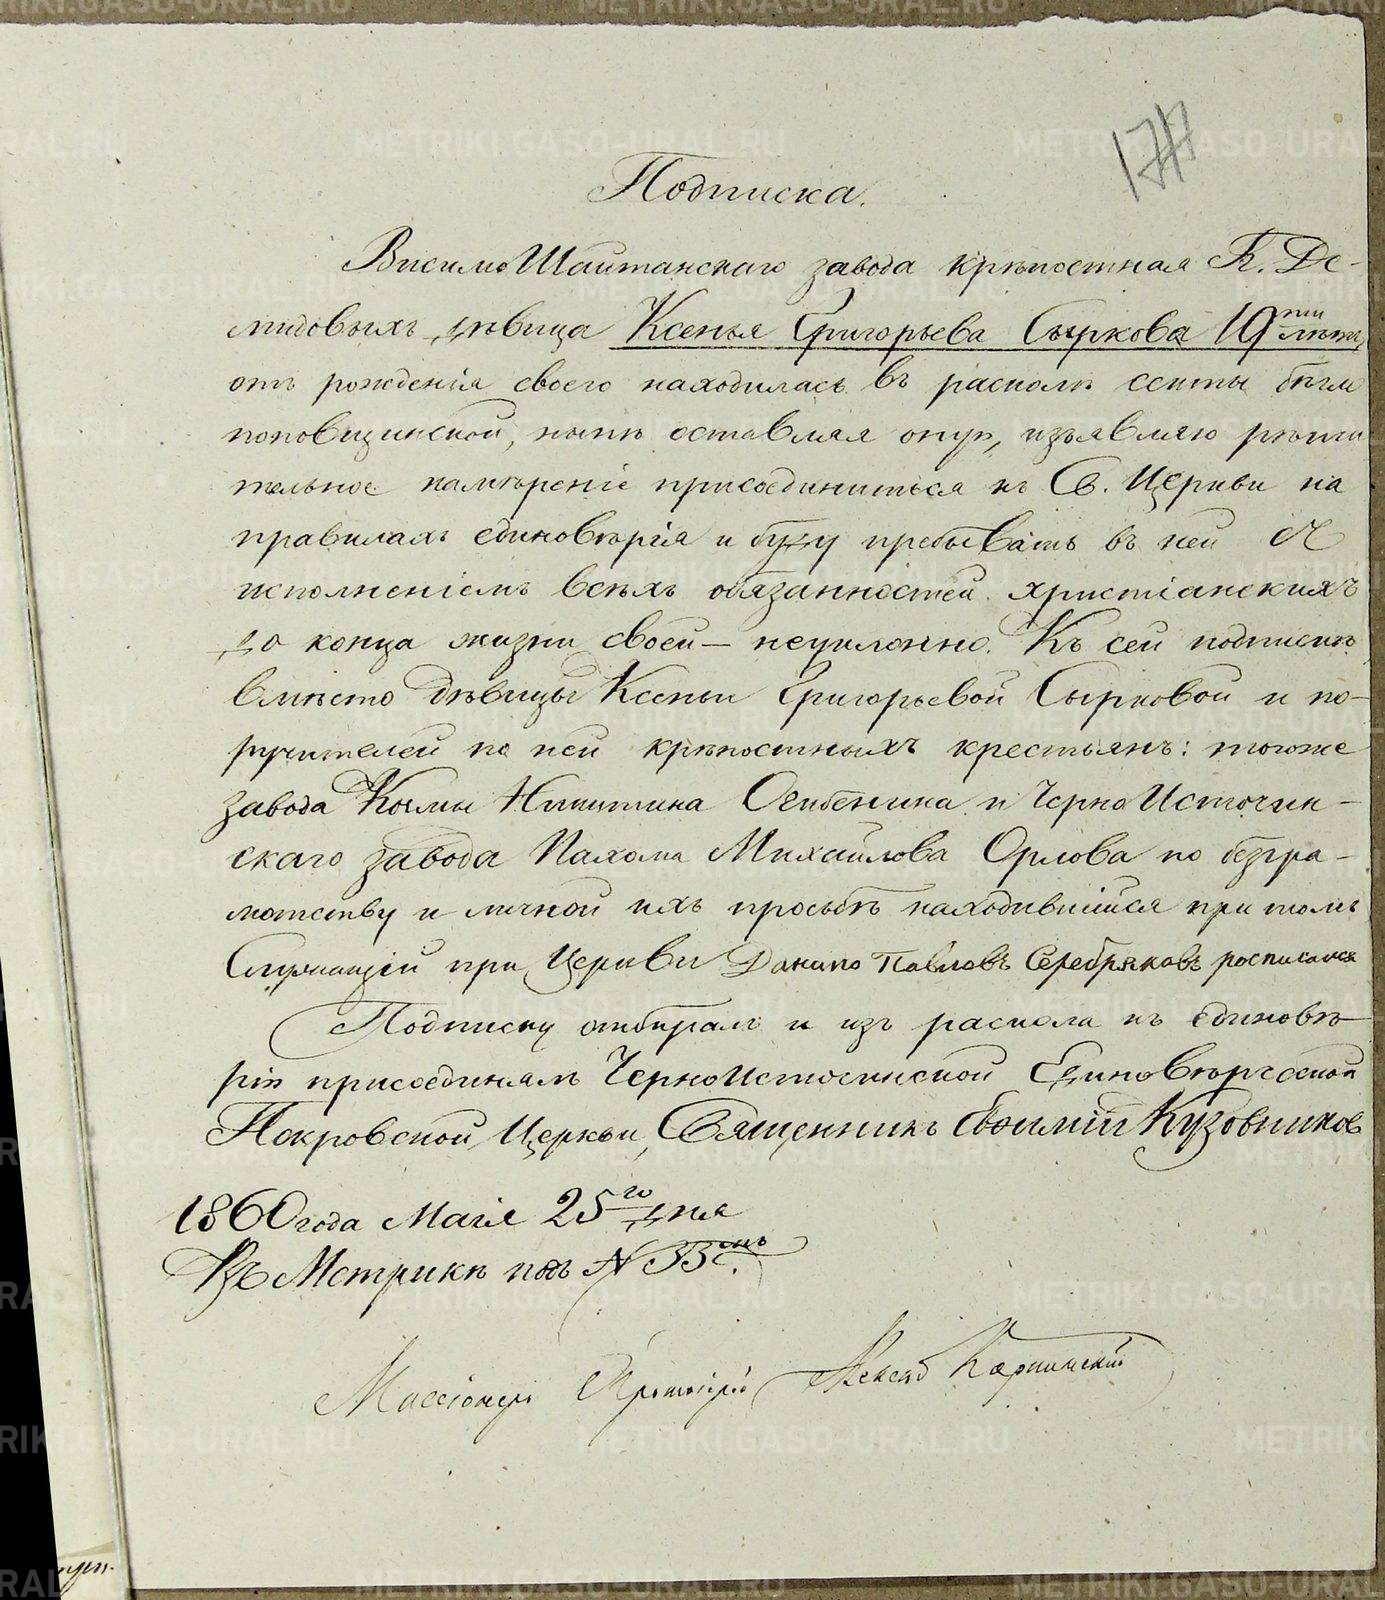 Подписка.
Висимо Шайтанскаго завода крѣпостная Г. Де-
мидовыхъ дѣвица Ксенья Григорьева Сыркова 19ти лѣтъ,
отъ рожденія своего находилась въ расколѣ секты бѣгло
поповщинской, нынѣ оставляя оную, изъявляю рѣши
тельное намѣреніе присоединиться къ Св. Церкви на
правилахъ единовѣрія и буду пребывать въ ней съ
исполненіемъ всѣхъ обязанностей христіанскихъ
до конца жизни своей — неуклонно. Къ сей подпискѣ
вмѣсто дѣвицы Ксеньи Григорьевой Сырковой и по-
ручителей по ней крѣпостныхъ крестьянъ: тогоже
завода Козмы Никитина и Черно Источин-
скаго завода Пахома Михайлова Орлова по безгра-
мотству и личной ихъ просьбѣ находившійся при томъ
Служащій при Церкви Данило Павловъ Серебряковъ росписался
Подписку отбиралъ и изъ раскола къ единовѣ-
рію присоединялъ Черноисточинской Единовѣрческой
Покровской Церкви, Священникъ Евфимій Кузовников
1860 года Маія 25го дня
Въ Метрикѣ подъ N 33мъ.
Миссіонеръ Протоіерей
METRIKI.GASO-URAL.RU